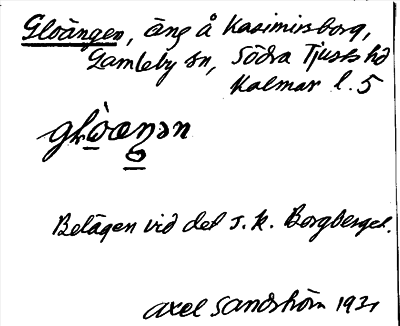 Gloängen, äng å Kasimirsborg,
Gamleby sn, Södra Tjusts hd
Kalmar l. 5
glòæŋən
Belägen vid det s. k. Borgberget.
Axel Sandström 1931